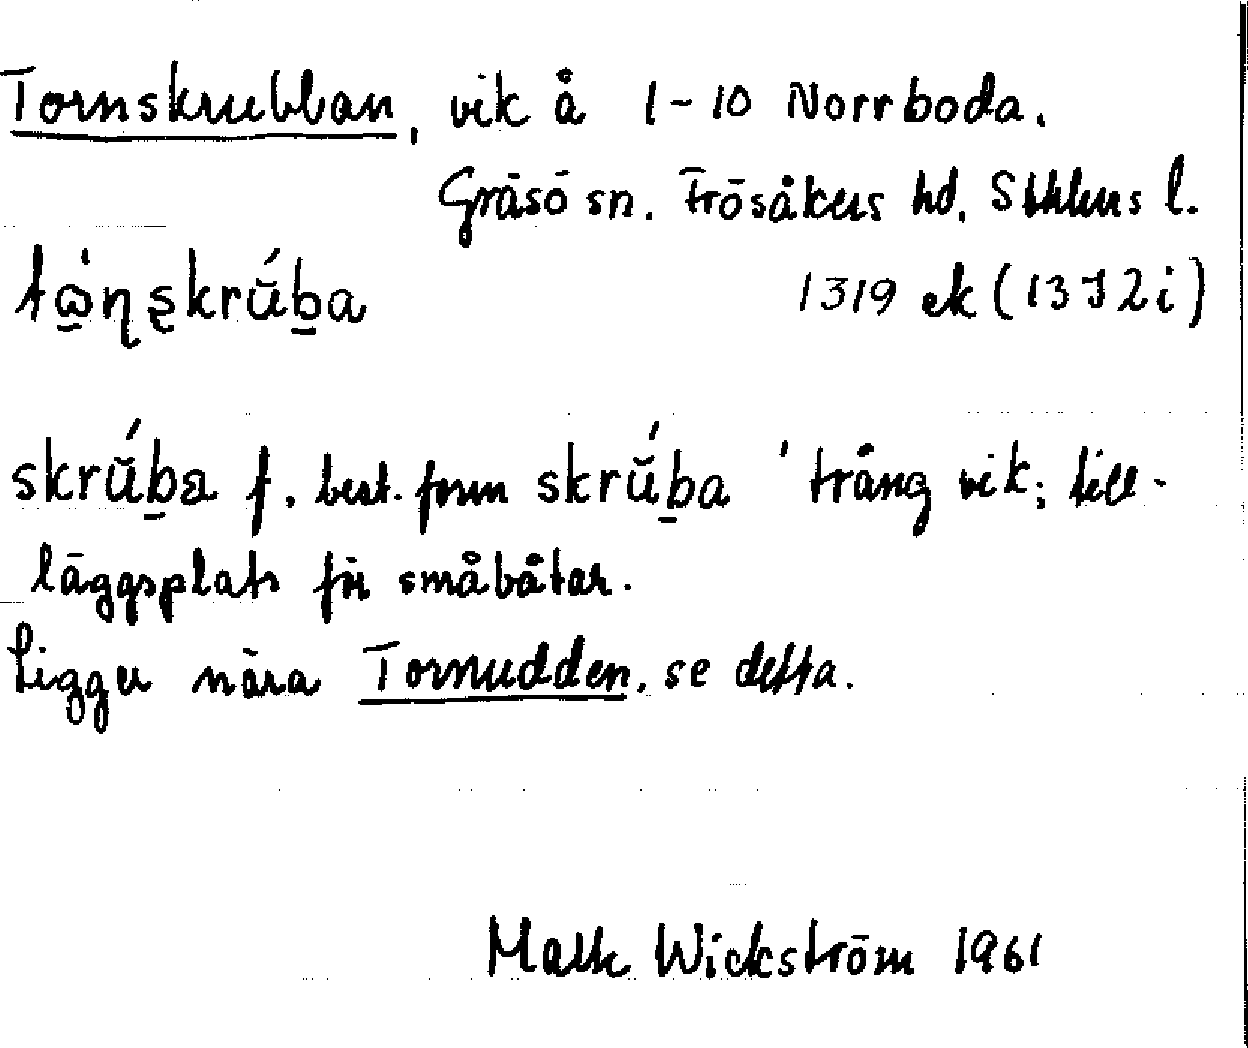 Tornskrubban, vik å 1-10 Norrboda.
Gräsö sn. Frösåkers hd. Sthlms l.
1319 ek (13I2i)
skrŭ́ba f. best. form skrŭ́ba 'trång vik; till-
läggsplats för småbåtar.
Ligger nära Tornudden, se detta.
Malte Wickström 1961